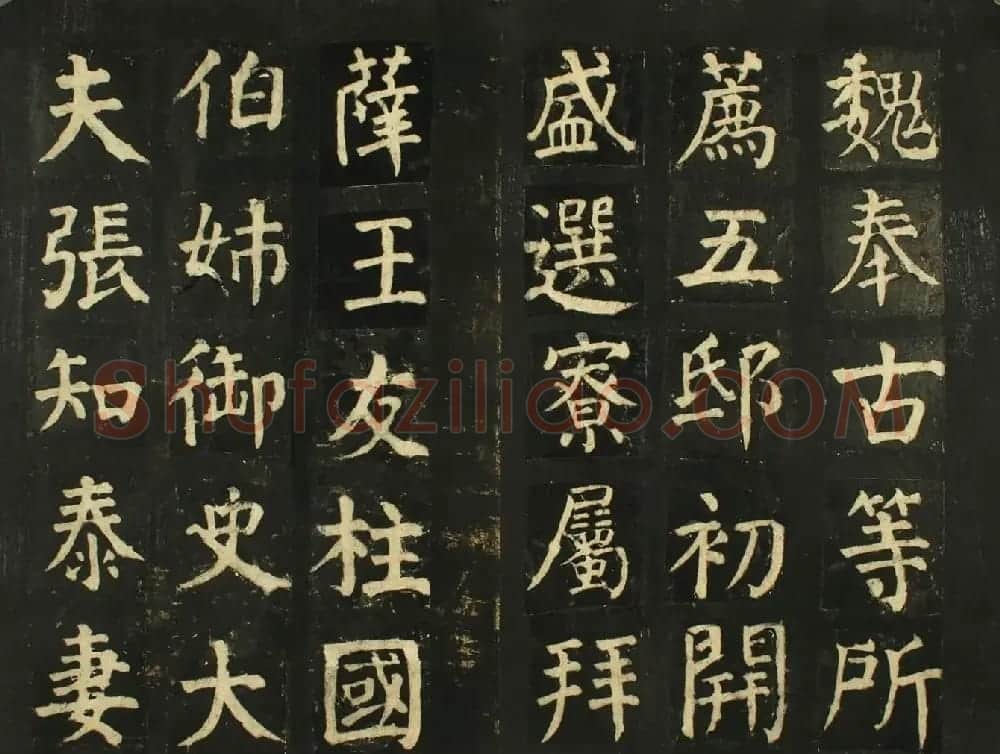 魏奉古等所
薦五邸初開
盛選寮屬拜
薩王友柱國
伯姉御史大
夫張知泰妻
Shufaziliao.COM